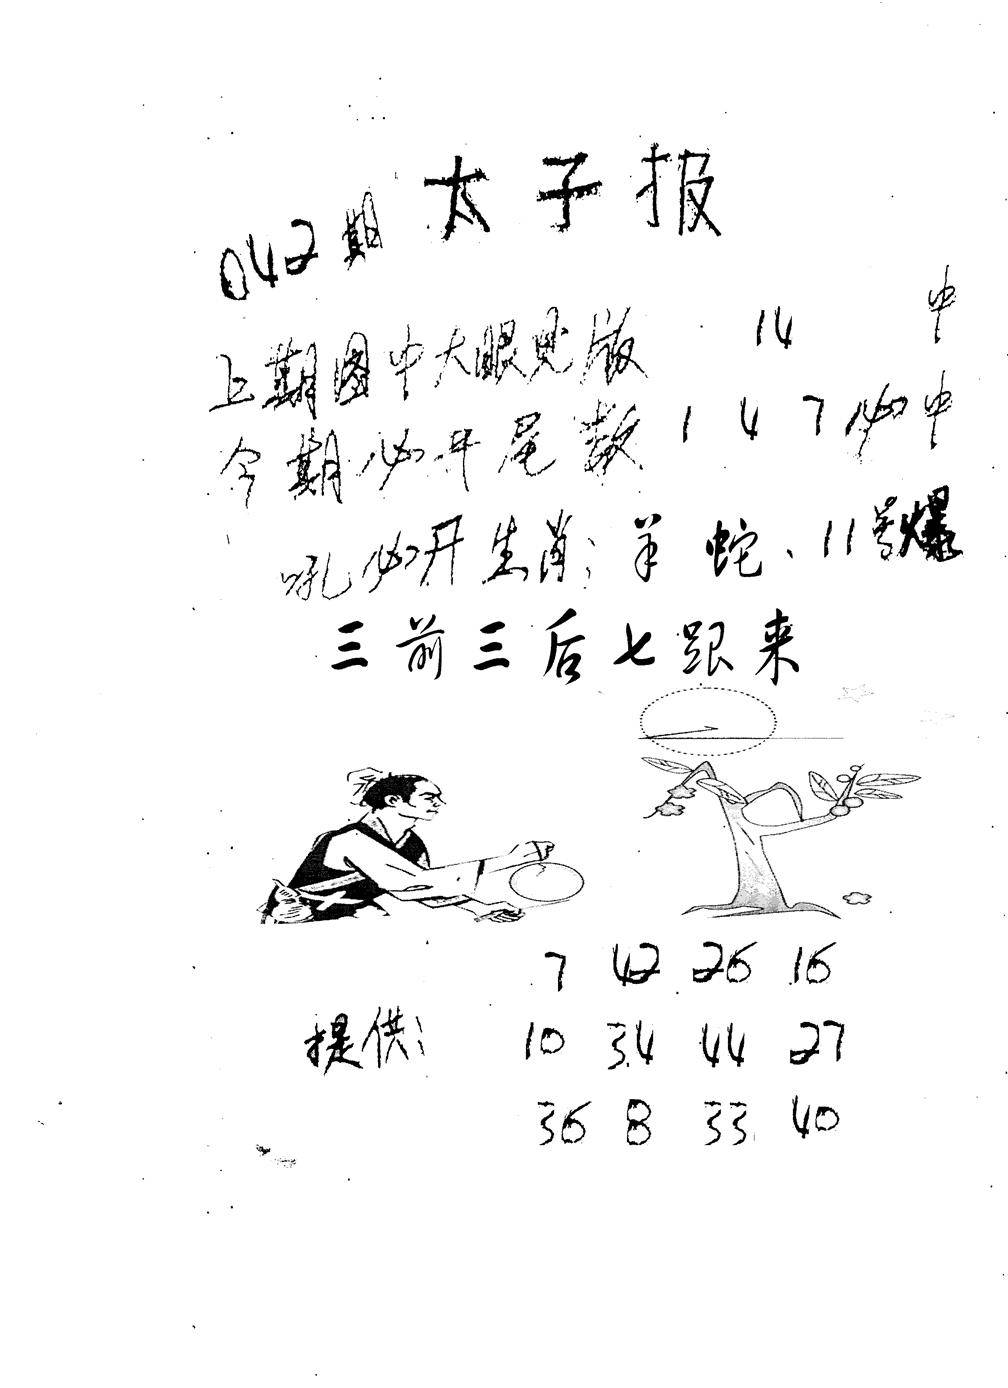 太子报
042期
上期图中大眼见版 14 中
今期必开尾数 1 4 7 必中
吼必开生肖：羊 蛇、11号爆
三前三后七跟来
7 42 26 16
提供：
10 34 44 27
36 8 33 40